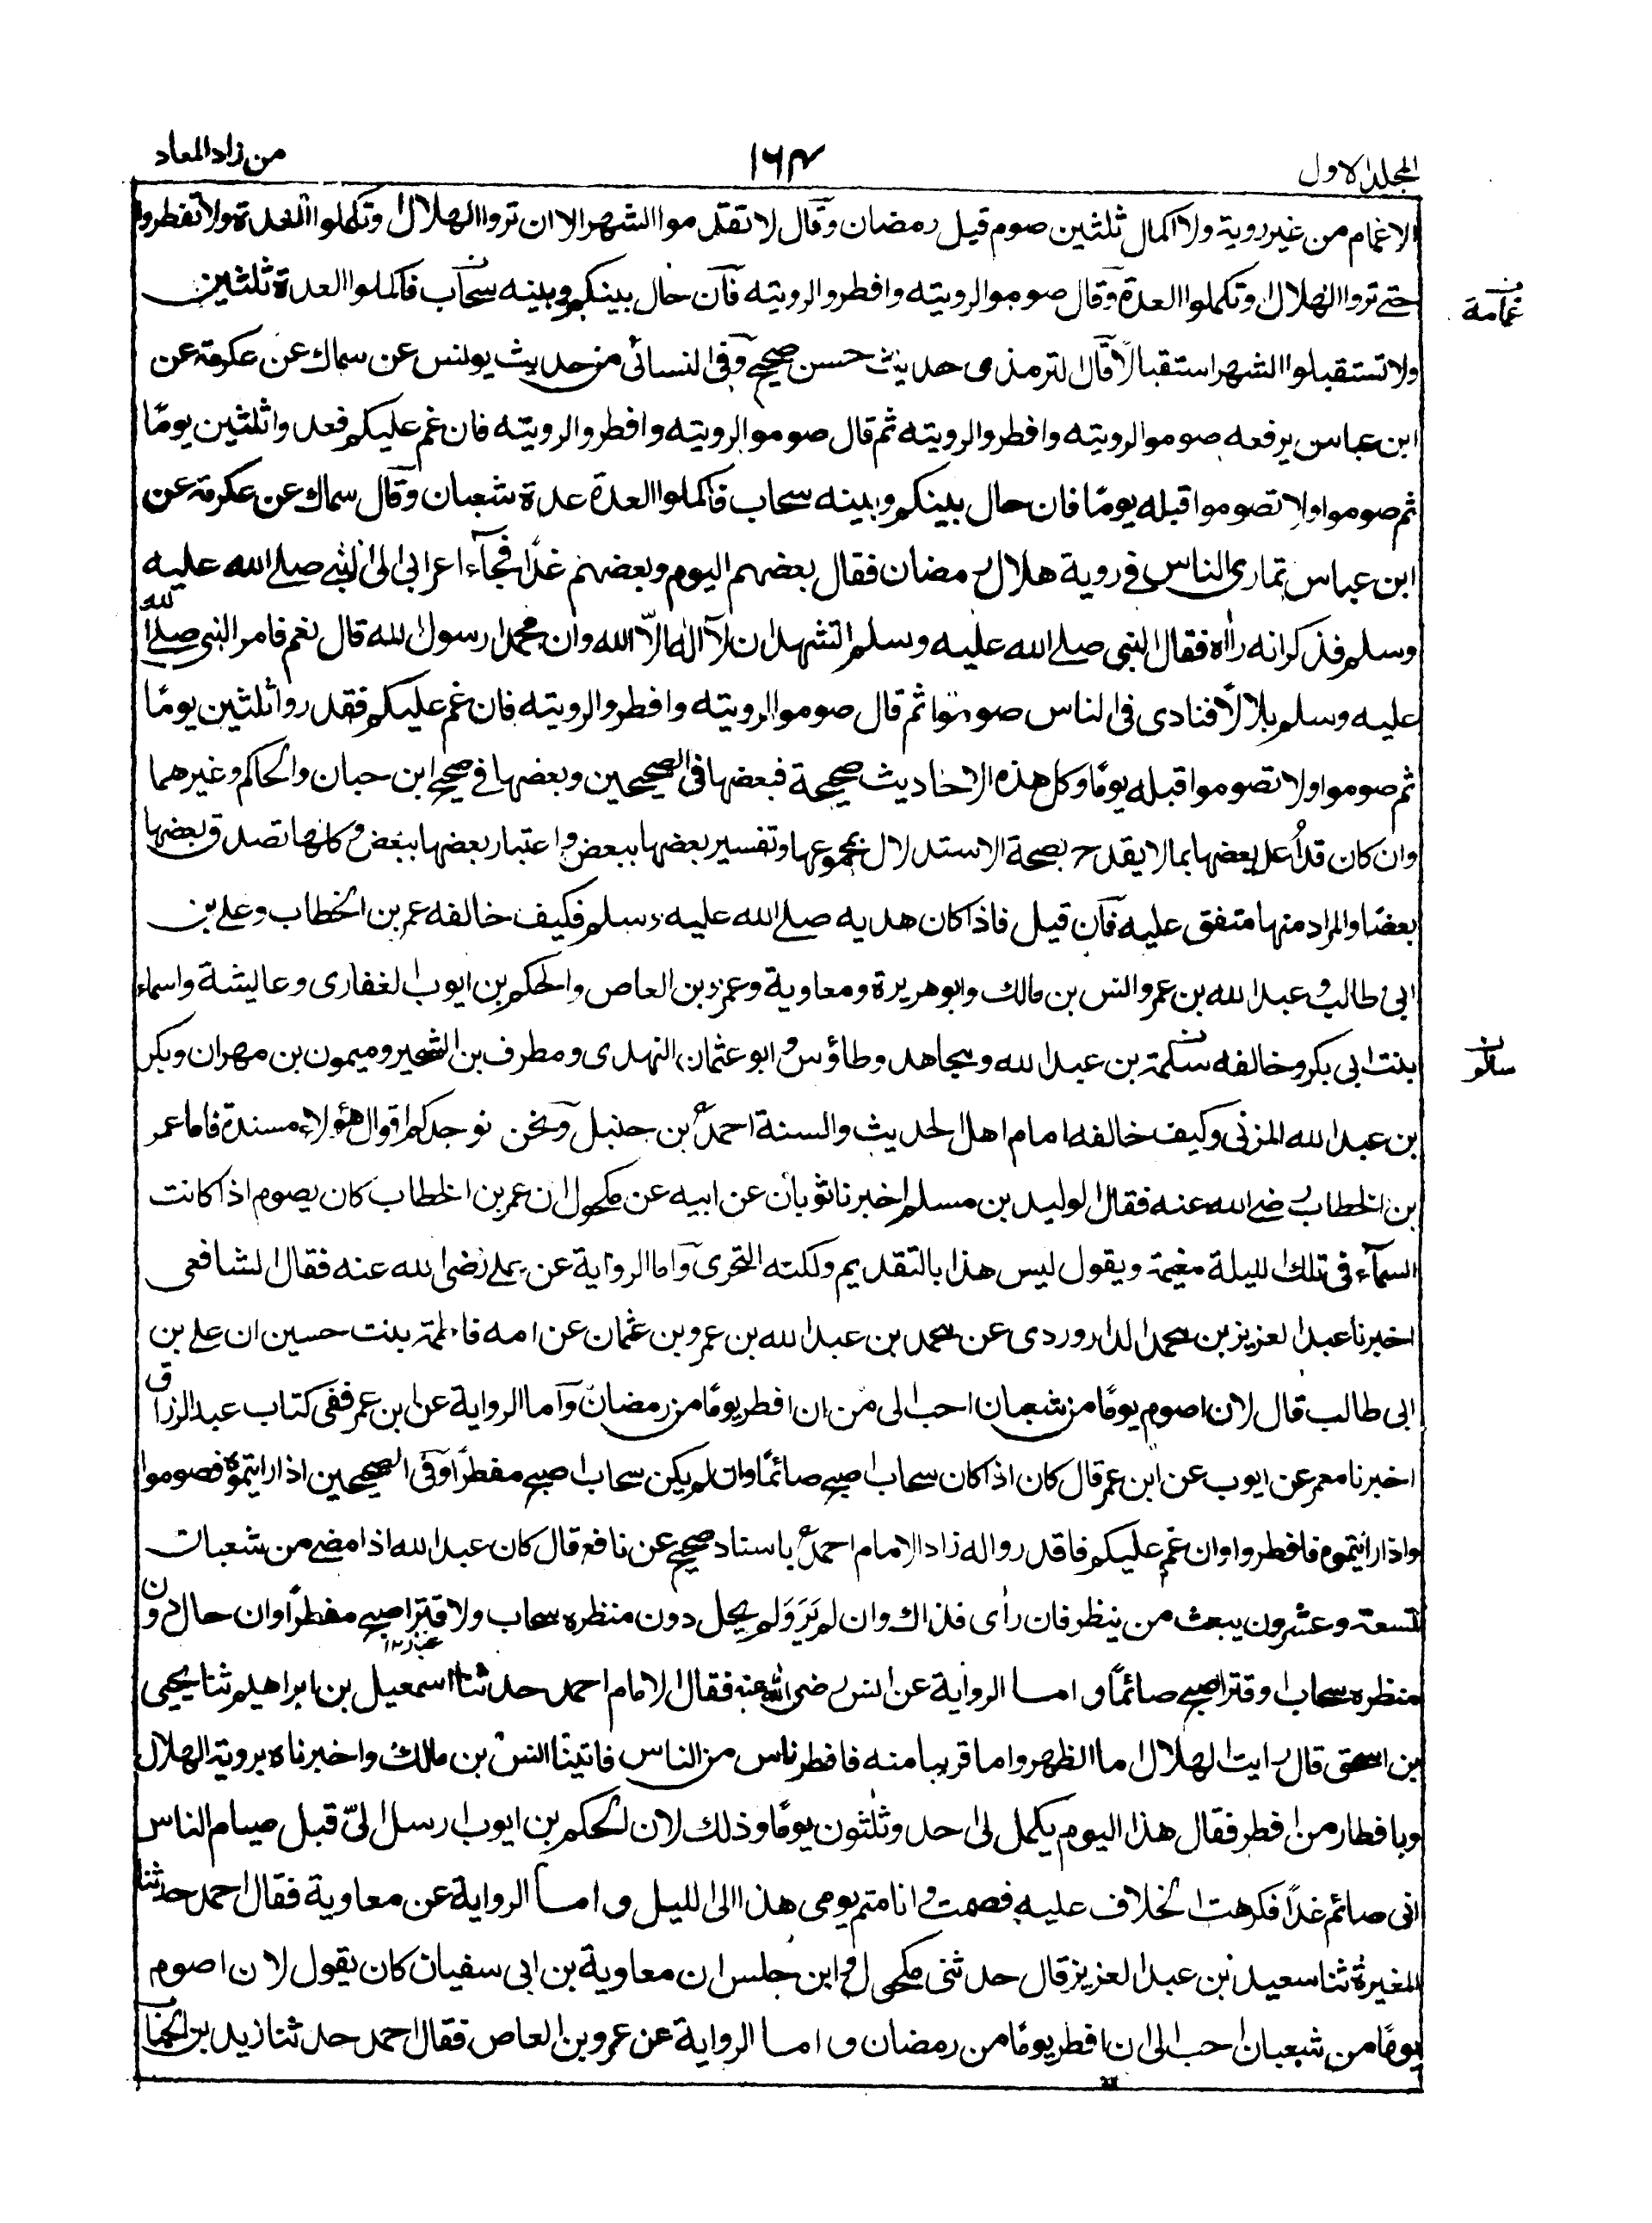 المجلد الاول
١٦٤
من زاد المعاد
الاغمام من غير روية ولا اكمال ثلثين صوم قيل رمضان وقال لا تقدموا الشهر الا ان تروا الهلال او تكملوا العدة ولا تفطروا
حتے تروا الهلال او تكملوا العدة وقال صوموا لرويته وافطروا لرويته فان حال بينكم وبينه سحاب فاكملوا العدة ثلثين
غمامة
ولا تستقبلوا الشهر استقبالا قال الترمذی حديث حسن صحيح وفی النسائی من حديث يونس عن سماك عن عكرمة عن
ابن عباس يرفعه صوموا لرويته وافطروا لرويته ثم قال صوموا لرويته وافطروا لرويته فان غم عليكم فعدوا ثلثين يومًا
ثم صوموا ولا تصوموا قبله يومًا فان حال بينكم وبينه سحاب فاكملوا العدة عدة شعبان وقال سماك عن عكرمة عن
ابن عباس تماری الناس فی روية هلال رمضان فقال بعضهم اليوم وبعضهم غدًا فجآء اعرابی الی النبے صلے الله عليه
وسلم فذكر انه راٰه فقال النبی صلے الله عليه وسلم اتشهد ان لآ الٰه الّا الله وان محمدا رسول الله قال نعم فامر النبی صلے الله
عليه وسلم بلالًا فنادی فی الناس صوموا ثم قال صوموا لرويته وافطروا لرويته فان غم عليكم فقدروا ثلثين يومًا
ثم صوموا ولا تصوموا قبله يومًا وكل هذه الاحاديث صحيحة فبعضها فی الصحيحين وبعضها فی صحيح ابن حبان والحاكم وغيرهما
وان كان قد اُعل بعضها بما لا يقدح بصحة الاستدلال بمجموعها وتفسير بعضها ببعض واعتبار بعضها ببعض وكلها تصدق بعضها
بعضًا والمراد منها متفق عليه فان قيل فاذا كان هديه صلے الله عليه وسلم فكيف خالفه عمر بن الخطاب وعلے بن
ابی طالب وعبد الله بن عمر وانس بن مالك وابو هريرة ومعاوية وعمرو بن العاص والحكم بن ايوب الغفاری وعايشة واسماء
بنت ابی بكر وخالفه سلمة بن عبد الله ومجاهد وطاؤس وابو عثمان النهدی ومطرف بن الشخير وميمون بن مهران وبكر
سالم
بن عبد الله المزنی وكيف خالفه امام اهل الحديث والسنة احمد بن حنبل ونحن نوجدكم اقوال هؤلاء مسندة فاما عمر
بن الخطاب رضی الله عنه فقال الوليد بن مسلم اخبرنا ثوبان عن ابيه عن مكحول ان عمر بن الخطاب كان يصوم اذا كانت
السمآء فی تلك الليلة مغيمة ويقول ليس هذا بالتقديم ولكنه التحری واما الرواية عن علے رضی الله عنه فقال الشافعی
اخبرنا عبد العزيز بن محمد الداروردی عن محمد بن عبد الله بن عمرو بن عثمان عن امه فاطمة بنت حسين ان علے بن
ابی طالب قال لان اصوم يومًا من شعبان احب الی من ان افطر يومًا من رمضان واما الرواية عن ابن عمر ففی كتاب عبد الرزاق
اخبرنا معمر عن ايوب عن ابن عمر قال كان اذا كان سحاب اصبح صائمًا وان لم يكن سحاب اصبح مفطرًا وفی الصحيحين اذا رايتموه فصوموا
واذا رايتموه فافطروا وان غم عليكم فاقدروا له زاد الامام احمد باسناد صحيح عن نافع قال كان عبد الله اذا مضے من شعبان
تسعة وعشرون يبعث من ينظر فان رأی فذاك وان لم يَرَ وَلم يحل دون منظره سحاب ولا قتر اصبح مفطرًا وان حال دون
غبار ١٢
منظره سحاب او قتر اصبح صائمًا واما الرواية عن انس رضی الله عنه فقال الامام احمد حدثنا اسمعيل بن ابراهيم ثنا يحيی
بن اسحق قال رايت الهلال اما الظهر واما قريبا منه فافطر ناس من الناس فاتينا انس بن مالك واخبرناه بروية الهلال
وبافطار من افطر فقال هذا اليوم يكمل لی احد وثلثون يومًا وذلك لان الحكم بن ايوب ارسل الیّ قبل صيام الناس
انی صائم غدًا فكرهت الخلاف عليه فصمت وانا متم يومی هذا الی الليل واما الرواية عن معاوية فقال احمد حدثنا
المغيرة ثنا سعيد بن عبد العزيز قال حدثنی مكحول وابن حلبس ان معاوية بن ابی سفيان كان يقول لان اصوم
يومًا من شعبان احب الی ان افطر يومًا من رمضان واما الرواية عن عمرو بن العاص فقال احمد حدثنا زيد بن الحباب